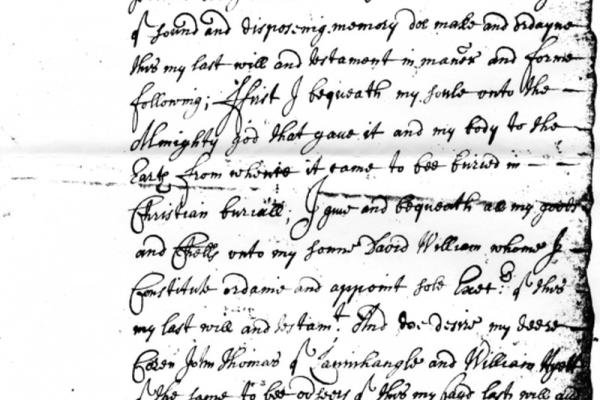 of sound and disposeing memory doe make and ordayne
this my last will and testament in maner and forme
following; ffirst I bequeath my soule onto the
Almighty god that gave it and my body to the
Earth from whence it came to bee buried in
Christian buriall; I give and bequeath all my goods
and Chells onto my sonne David William whome I
Constitute ordaine and appoint sole Exec:r of this
my last will and testamt. And doe desire my deere
John Thomas of and William
of the same to bee of this my last will and